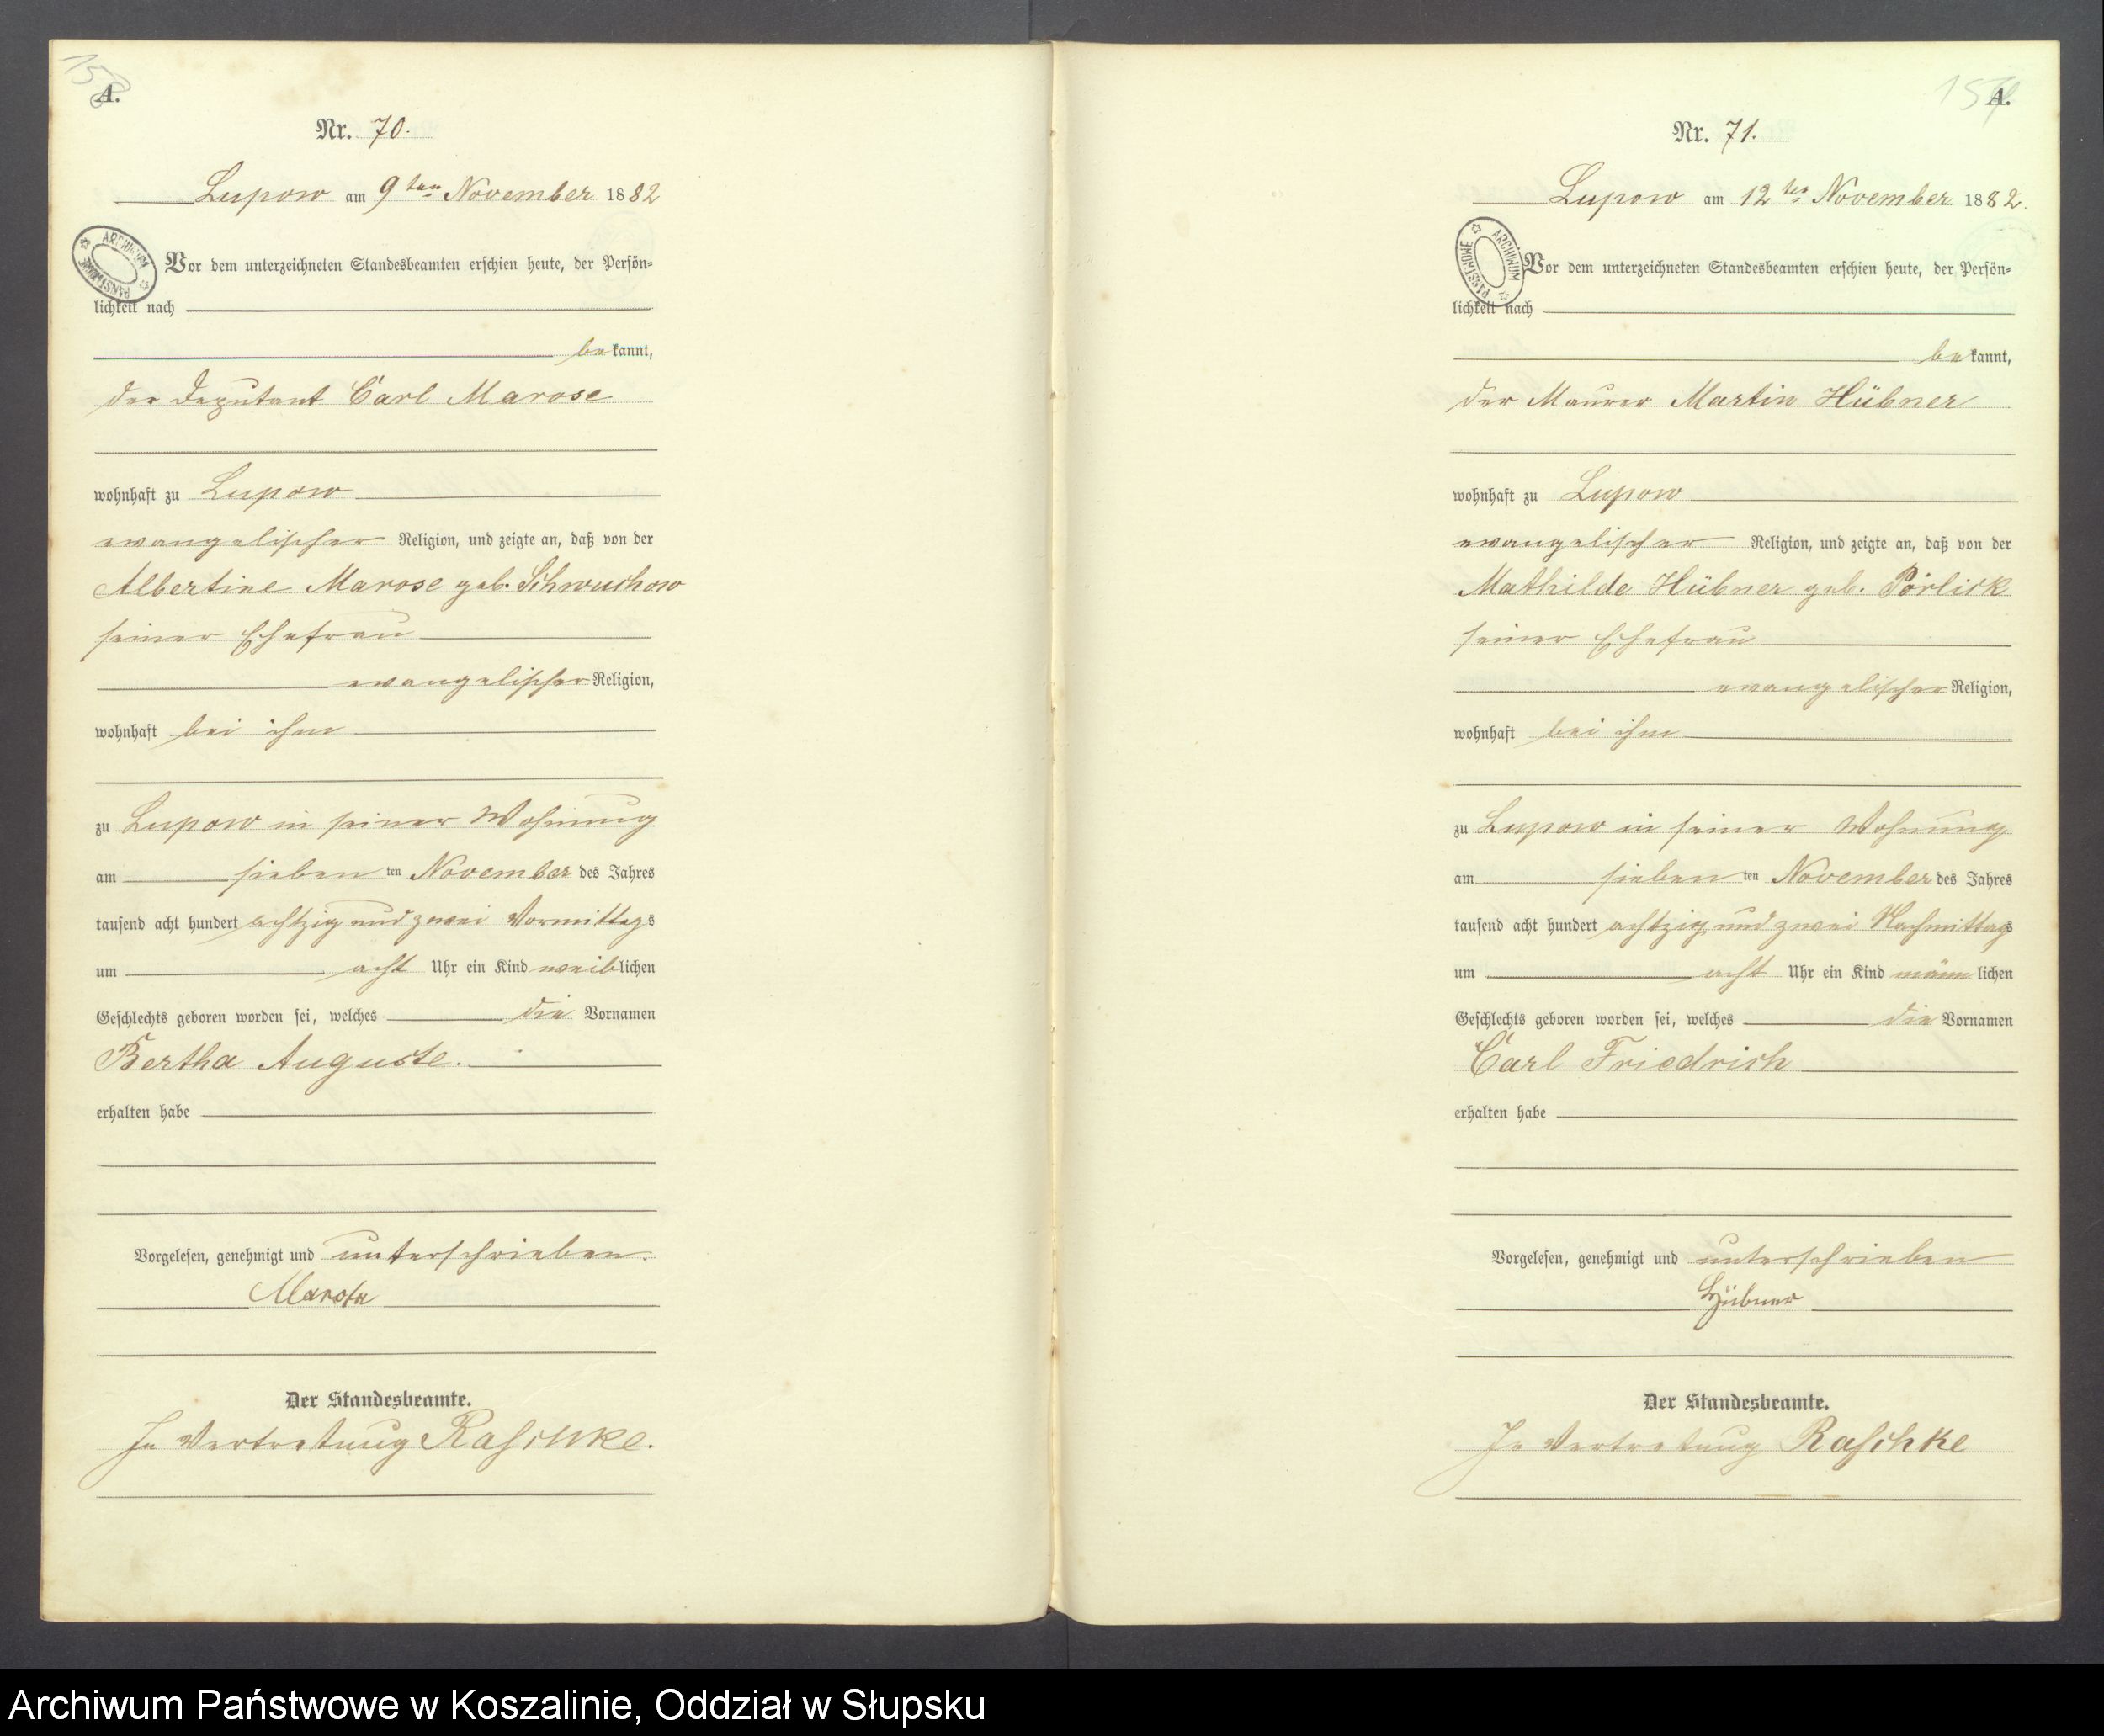 158
A.
Nr. 70.
Lupow am 9ten November 1882
ARCHIWUM PAŃSTWOWE
Vor dem unterzeichneten Standesbeamten erschien heute, der Persön-
lichkeit nach
bekannt,
der Deputant Carl Marose
wohnhaft zu Lupow
evangelischer Religion, und zeigte an, daß von der
Albertine Marose geb. Schwuchow
seiner Ehefrau
evangelischer Religion,
wohnhaft bei ihm
zu Lupow in seiner Wohnung
am sieben ten November des Jahres
tausend acht hundert achtzig und zwei Vormittags
um acht Uhr ein Kind weiblichen
Geschlechts geboren worden sei, welches die Vornamen
Bertha Auguste.
erhalten habe
Vorgelesen, genehmigt und unterschrieben.
Der Standesbeamte.
In Vertretung Raschke.
A.
Nr. 71.
Lupow am 12ten November 1882.
ARCHIWUM PAŃSTWOWE
Vor dem unterzeichneten Standesbeamten erschien heute, der Persön-
lichkeit nach
bekannt,
der Maurer Martin Hübner
wohnhaft zu Lupow
evangelischer Religion, und zeigte an, daß von der
Mathilde Hübner geb. Pörlick
seiner Ehefrau
evangelischer Religion,
wohnhaft bei ihm
zu Lupow in seiner Wohnung
am sieben ten November des Jahres
tausend acht hundert achtzig und zwei Nachmittags
um acht Uhr ein Kind männlichen
Geschlechts geboren worden sei, welches die Vornamen
Carl Friedrich
erhalten habe
Vorgelesen, genehmigt und unterschrieben
Hübner
Der Standesbeamte.
In Vertretung Raschke
Archiwum Państwowe w Koszalinie, Oddział w Słupsku